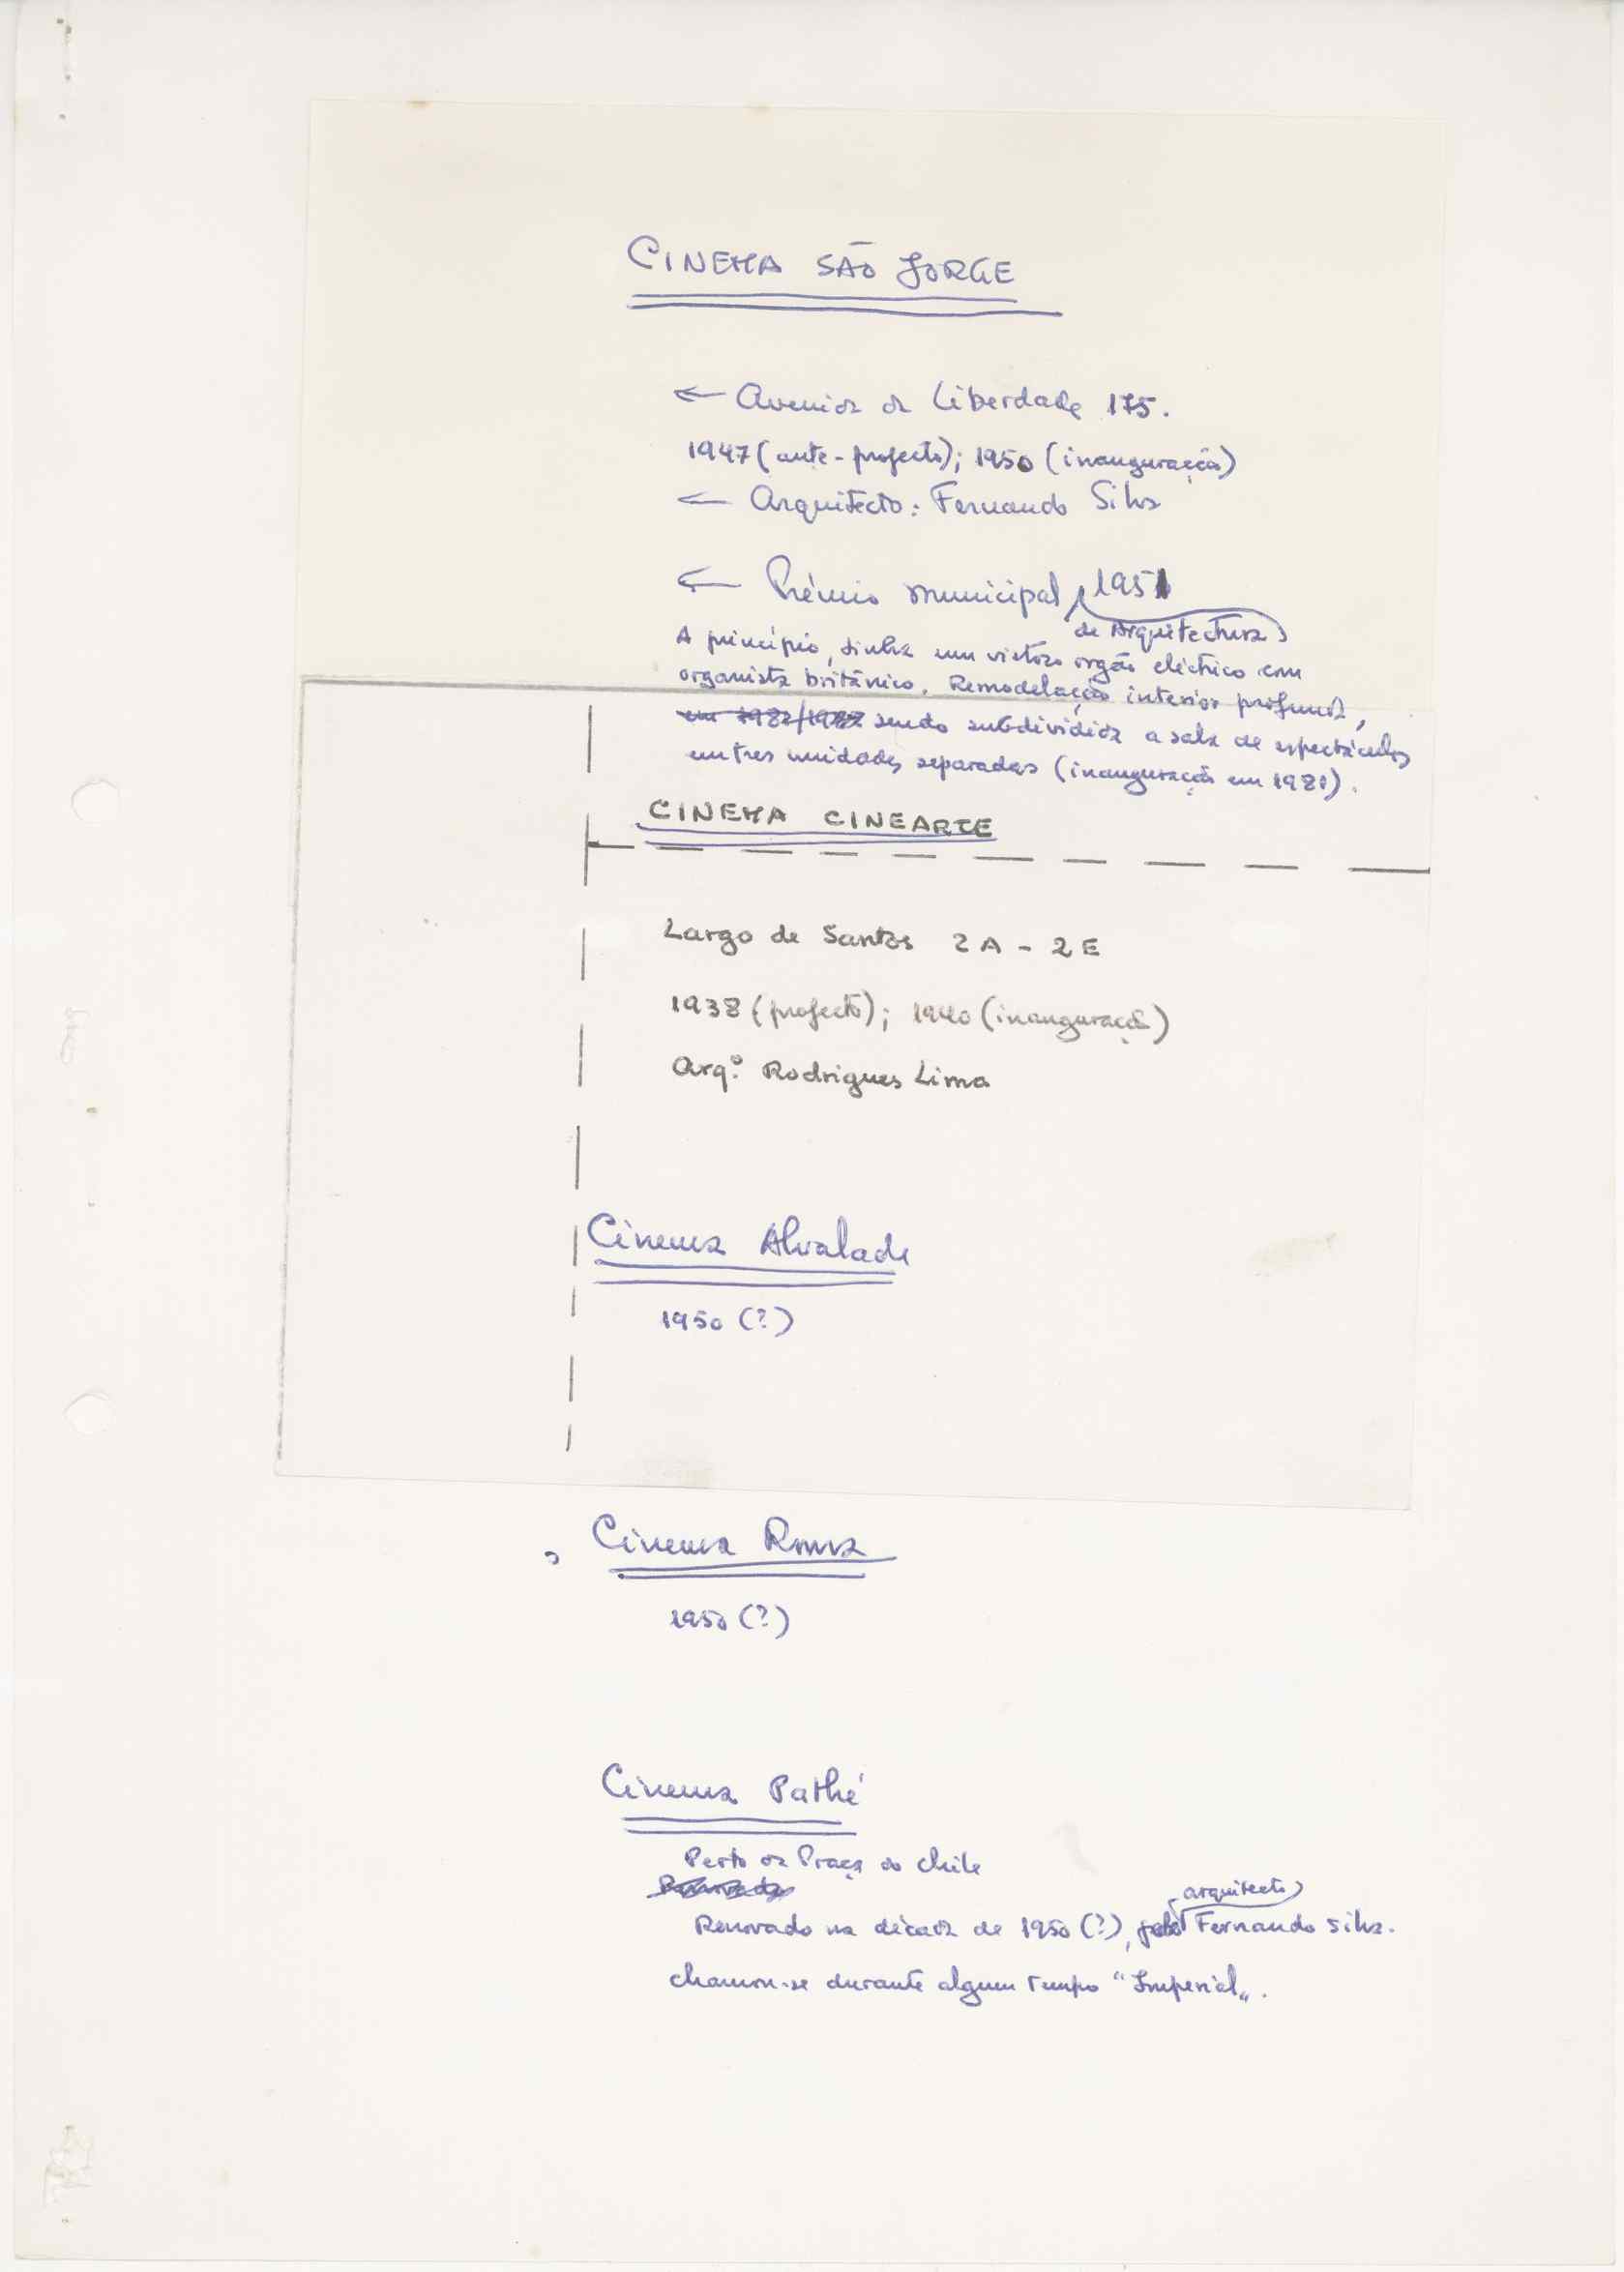 CINEMA SÃO JORGE
← Avenida da Liberdade 175.
1947 (ante-projecto); 1950 (inauguração)
← Arquitecto: Fernando Silva
← Prémio municipal 1951
de Arquitectura
A princípio, tinha um vistoso orgão eléctrico com
organista britânico. Remodelação interior profunda,
em 1982/1982 sendo subdividida a sala de espectáculos
em tres unidades separadas (inauguração em 1981).
CINEMA CINEARTE
Largo de Santos 2A - 2E
1938 (projecto); 1940 (inauguração)
Arqº. Rodrigues Lima
Cinema Alvalade
1950 (?)
Cinema Roma
1950 (?)
Cinema Pathé
Perto da Praça do Chile
arquitecto
Renovado na década de 1950 (?), pelo Fernando Silva.
Chamou-se durante algum tempo "Imperial".